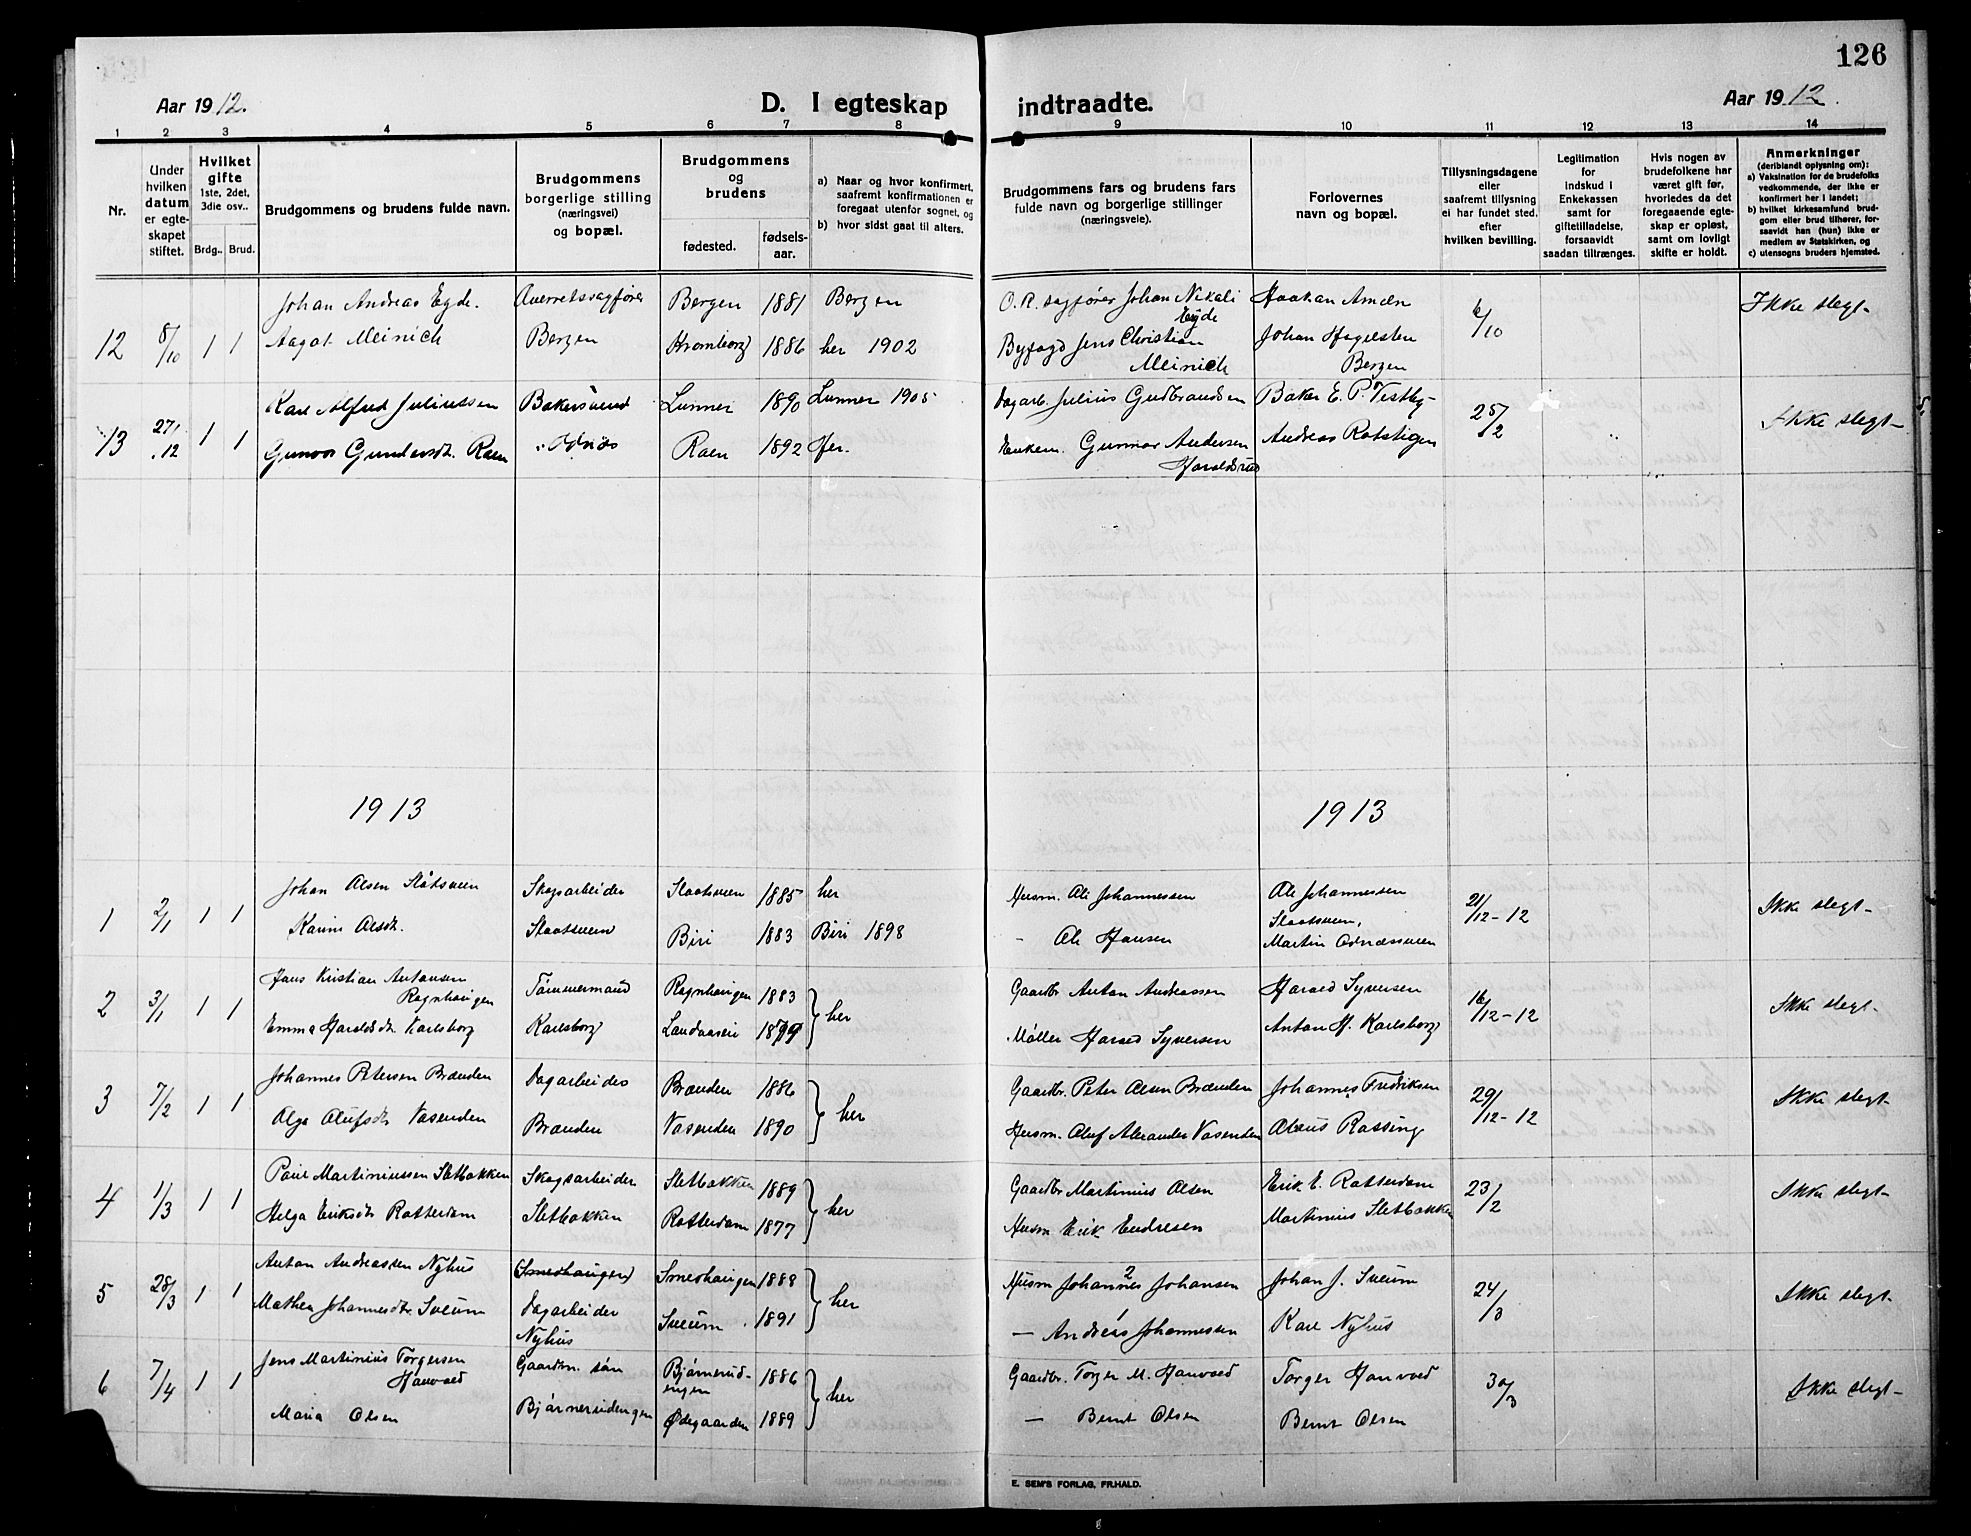 126
Aar 1912.
D. I egteskap indtraadte.
Aar 1912.
1 2 3 4 5 6 7 8 9 10 11 12 13 14
Nr.
Under
hvilken
datum
er egte-
skapet
stiftet.
Hvilket
gifte
1ste, 2det,
3die osv..
Brdg.. Brud.
Brudgommens og brudens fulde navn.
Brudgommens
borgerlige stilling
(næringsvei)
og bopæl.
Brudgommens
og
brudens
fødested.
fødsels-
aar.
a) Naar og hvor konfirmert,
saafremt konfirmationen er
foregaat utenfor sognet, og
b) hvor sidst gaat til alters.
Brudgommens fars og brudens fars
fulde navn og borgerlige stillinger
(næringsveie).
Forlovernes
navn og bopæl.
Tillysningsdagene
eller
saafremt tillysning
ei har fundet sted.
efter
hvilken bevilling.
Legitimation
for
indskud i
Enkekassen
samt for
giftetilladelse,
forsaavidt
saadan tiltrænges.
Hvis nogen av
brudefolkene har
været gift før,
hvorledes da det
foregaaende egte-
skap er opløst,
samt om lovligt
skifte er holdt.
Anmerkninger
(deriblandt oplysning om):
a) Vaksination for de brudefolks
vedkommende, der ikke er
konfirmert her i landet;
b) hvilket kirkesamfund brud-
gom eller brud tilhører, for-
saavidt han (hun) ikke er
medlem av Statskirken, og
c) utensogns bruders hjemsted.
Johan Andreas Egde. Overretssagfører Bergen 1881 Bergen O. R. sagfører Johan Nikolai Egde Haakan 6/10 Ikke slegt-
12 8/10 1 1 Aagot Meinich Bergen Kromborg 1886 her 1902 Byfogd Jens Christian Meinich Johan Hagelsten Bergen
Karl Alfred Juliussen Bakersvend Lunner 1890 Lunner 1905 Dagarb. Julius Gudbrandsen Baker E. P. Vestby 25/2 Ikke slegt-
13 27/12 1 1 Gunvor Gundersdt. Raen Odnæs Raen 1892 Her. Gunnar Andersen Haraldsrud Andreas Rotstigen
1913
1913
Johan Olsen Slåtsveen Skogsarbeider Slaatsveen 1885 her Husm. Ole Johannessen Ole Johannessen Slaatsveen, 21/12-12 Ikke slegt-
1 2/1 1 1 Karine Olsdt. Slaatsveen Biri 1883 Biri 1898 - Ole Hansen Martin Odnæsveen
Hans Kristian Antonsen Ragnhaugen Tømmermand Ragnhaugen 1883 her Gaardbr. Anton Andreassen Harald Syversen 16/12-12 Ikke slegt-
2 3/1 1 1 Emma Haraldsdt. Karlsborg Karlsborg Landaasen Møller Harald Syversen Anton H. Karlsborg
Johannes Petersen Brænden Dagarbeider Brænden 1886 her Gaardbr. Peter Olsen Brænden Johannes Fredriksen 29/12-12 Ikke slegt-
3 7/2 1 1 Olga Olufsdt. Vasenden Brænden Vasenden 1890 Husm. Oluf Alexander Vasenden Olaus Rossing
Paul Martiniussen Sletbakken Skogsarbeider Sletbakken 1889 her Gaardbr Martinius Olsen Erik E. Rotterdam 23/2 Ikke slegt-
4 1/3 1 1 Helga Eriksdt. Rotterdam Sletbakken Rotterdam 1877 Husm Erik Endresen Martinius Sletbakken
Anton Andreassen Nyhus Smedhaugen Smedhaugen 1888 her Husm Johannes 2 Johansen Johan J. Sveum 24/3 Ikke slegt-
5 28/3 1 1 Mathea Johannesdt. Sveum Dagarbeider Nyhus Sveum 1891 - Andreas 1 Johannessen Karl Nyhus
Jens Martinius Torgersen Hauvold Gaardm. søn Bjørnerud-engen 1886 her Gaardbr. Torger M. Hanvold Torger Hanvold 30/3 Ikke slegt-
6 7/4 1 1 Maria Olsen Bjørnerudengen Ødegaarden 1889 - Bernt Olsen Bernt Olsen
E. SEM'S FORLAG, FR.HALD.